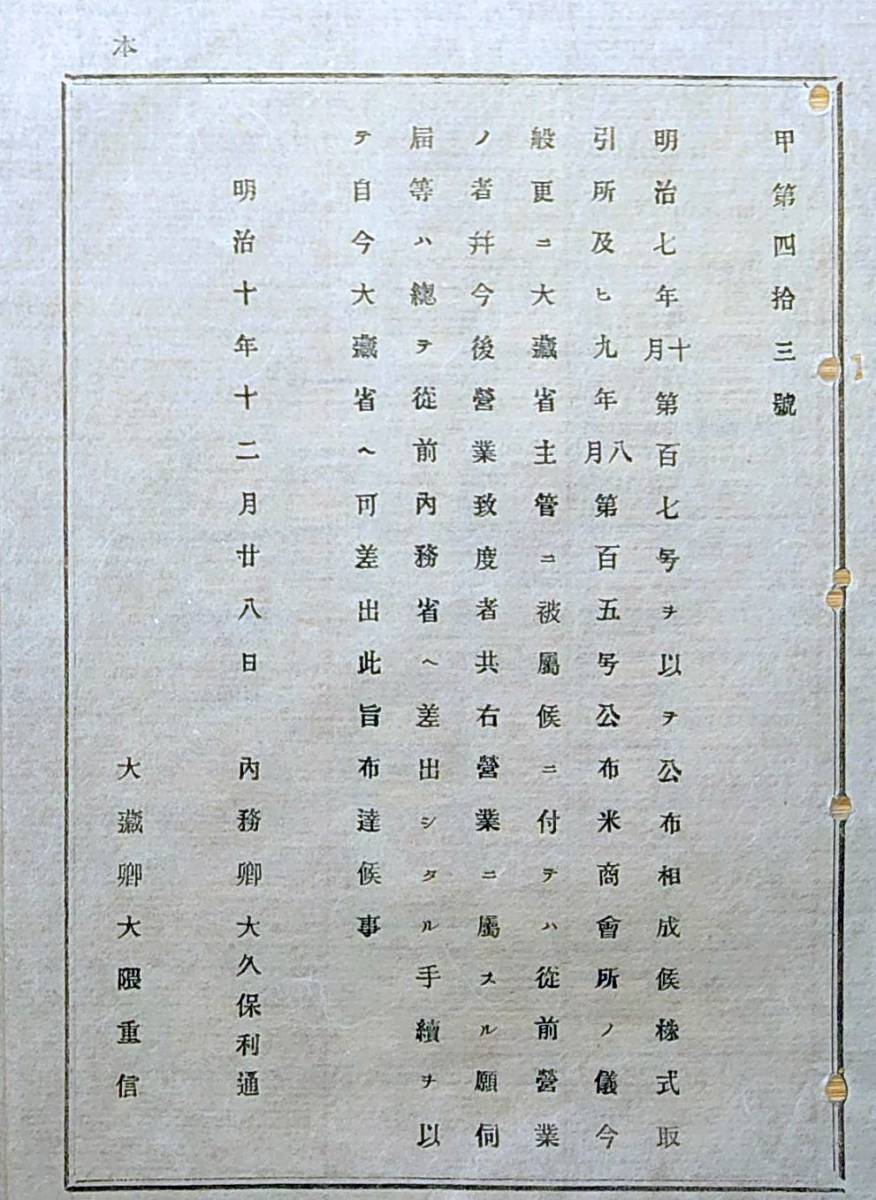 本
甲第四拾三號
明治七年十月第百七号ヲ以テ公布相成候株式取
引所及ヒ九年八月第百五号公布米商會所ノ儀今
般更ニ大藏省主管ニ被屬候ニ付テハ從前營業
ノ者幷今後營業致度者共右營業ニ屬スル願伺
屆等ハ總テ從前內務省ヘ差出シタル手續ヲ以
テ自今大藏省ヘ可差出此旨布達候事
明治十年十二月廿八日
內務卿大久保利通
大藏卿大隈重信